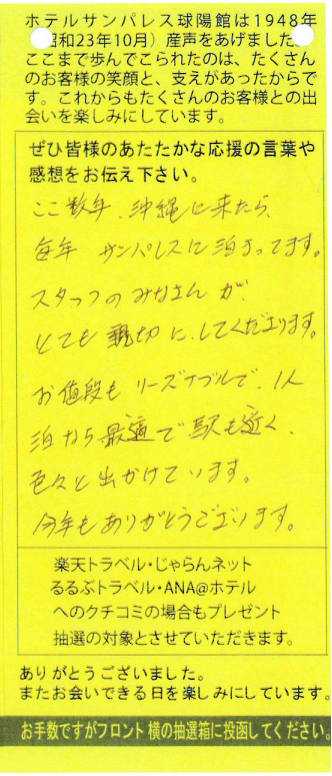 ホテルサンパレス球陽館は1948年
昭和23年10月）産声をあげました。
ここまで歩んでこられたのは、たくさん
のお客様の笑顔と、支えがあったからで
す。これからもたくさんのお客様との出
会いを楽しみにしています。
ぜひ皆様のあたたかな応援の言葉や
感想をお伝え下さい。
ここ数年、沖縄に来たら、
毎年 サンパレスに泊まってます。
スタッフのみなさんが、
とても親切に、してくださります。
お値段もリーズナブルで、1人
泊なら最適で駅も近く、
色々と出かけています。
今年もありがとうございます。
楽天トラベル・じゃらんネット
るるぶトラベル・ANA@ホテル
へのクチコミの場合もプレゼント
抽選の対象とさせていただきます。
ありがとうございました。
またお会いできる日を楽しみにしています。
お手数ですがフロント横の抽選箱に投函してください。